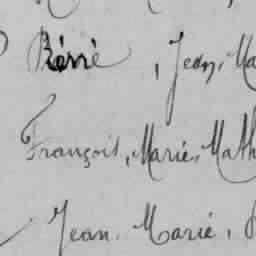 Bérrè, Jean, Ma
François, Marie, Math
Jean Marie,